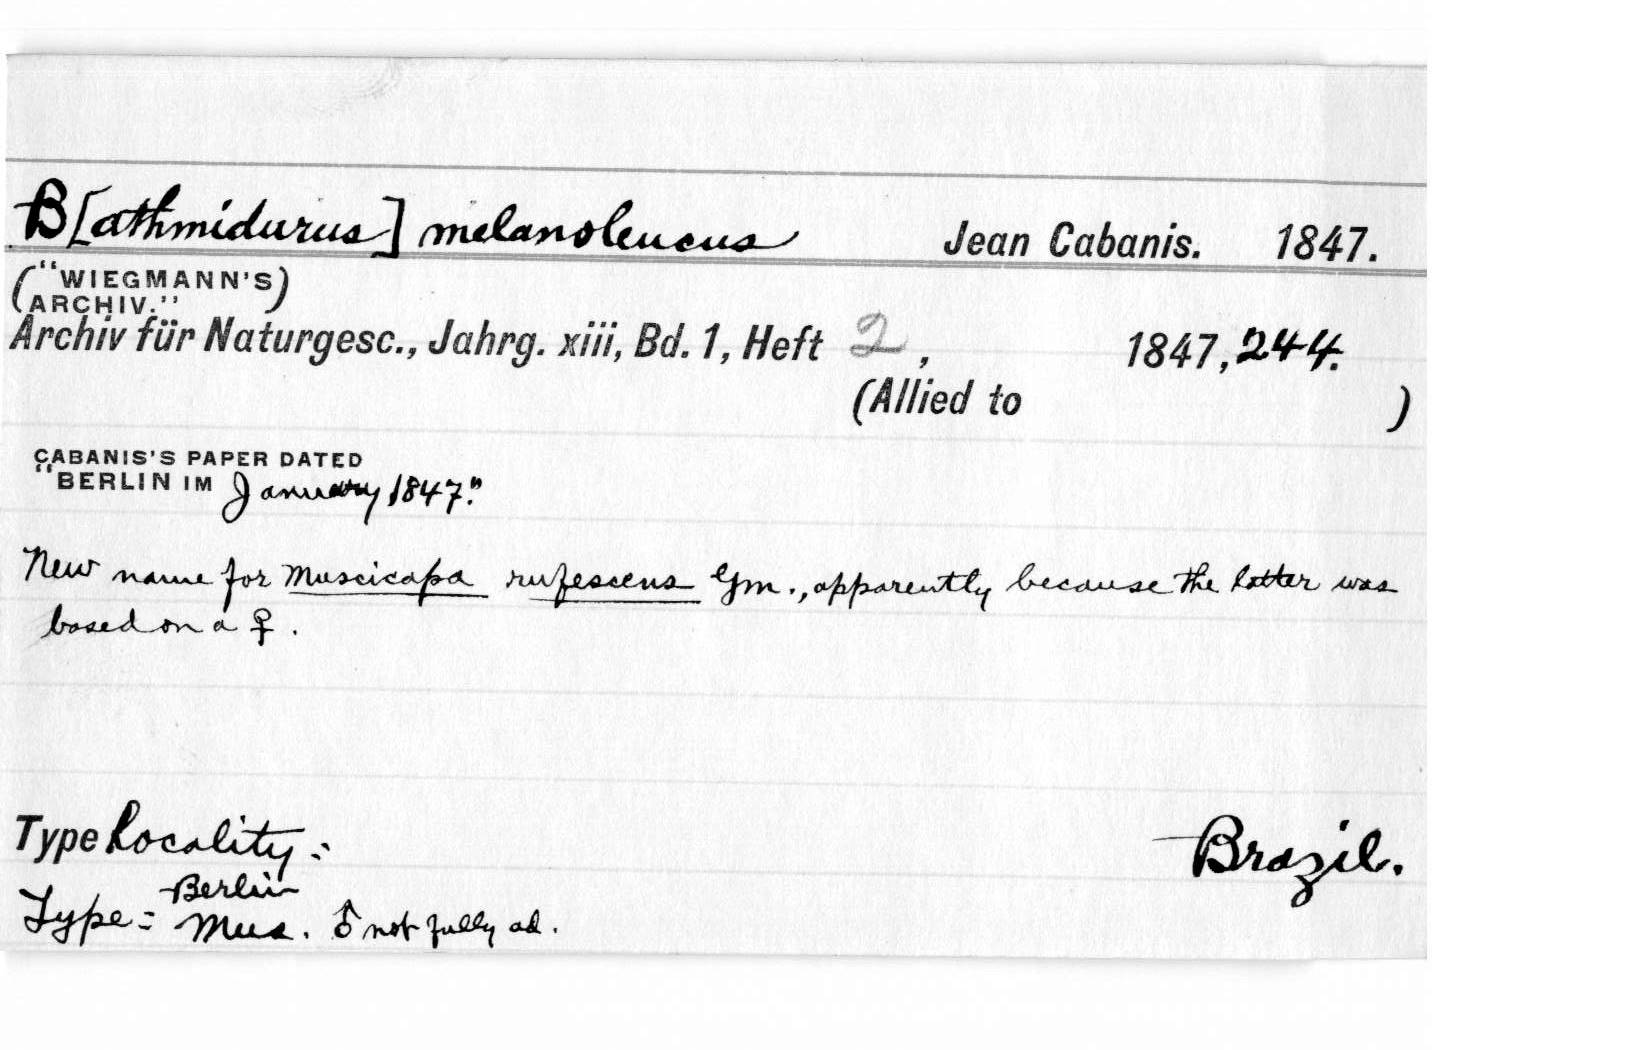 B[athmidurus] melanoleucus Jean Cabanis. 1847.
("WIEGMANN'S)
(ARCHIV." )
Archiv für Naturgesc., Jahrg. xiii, Bd. 1, Heft 2, 1847, 244.
(Allied to )
CABANIS'S PAPER DATED
"BERLIN IM January 1847."
New name for Muscicapa rufescens Gm., apparently because the latter was
based on a ♀.
Type Locality:- Brazil.
Berlin
Type:- Mus. ♂ not fully ad.